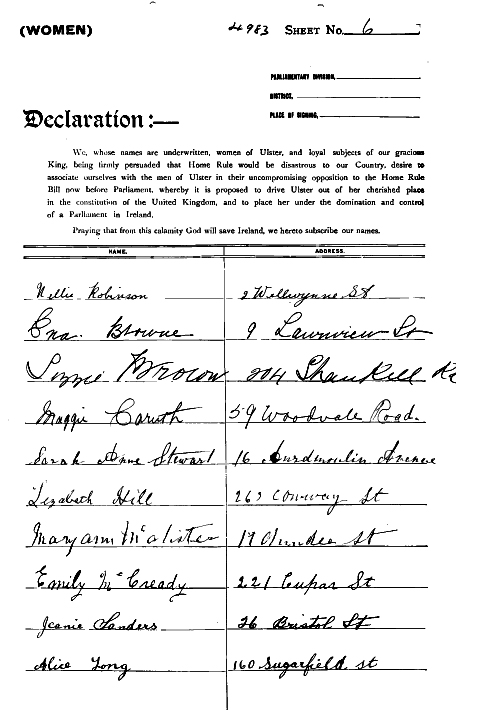 (WOMEN)
4983 SHEET No. 6
PARLIAMENTARY DIVISION,
DISTRICT,
PLACE OF SIGNING,
Declaration :—
We, whose names are underwritten, women of Ulster, and loyal subjects of our gracious
King, being firmly persuaded that Home Rule would be disastrous to our Country, desire to
associate ourselves with the men of Ulster in their uncompromising opposition to the Home Rule
Bill now before Parliament, whereby it is proposed to drive Ulster out of her cherished place
in the constitution of the United Kingdom, and to place her under the domination and control
of a Parliament in Ireland.
Praying that from this calamity God will save Ireland, we hereto subscribe our names.
NAME. ADDRESS.
Nellie Robinson 2 Willwynne St
Ena. Browne 9 Lawnview St
Lizzie Brown 204 Shankill Rd
Maggie Caruth 59 Woodvale Road.
Sarah Anne Stewart 16 Avenue
Lizabeth Hill Conway St
Maryann McAlister 17 Dundee St
Emily McCready 221 Cupar St
Jeanie Sanders 26 Bristol St
Alice Long 160 Sugarfield st